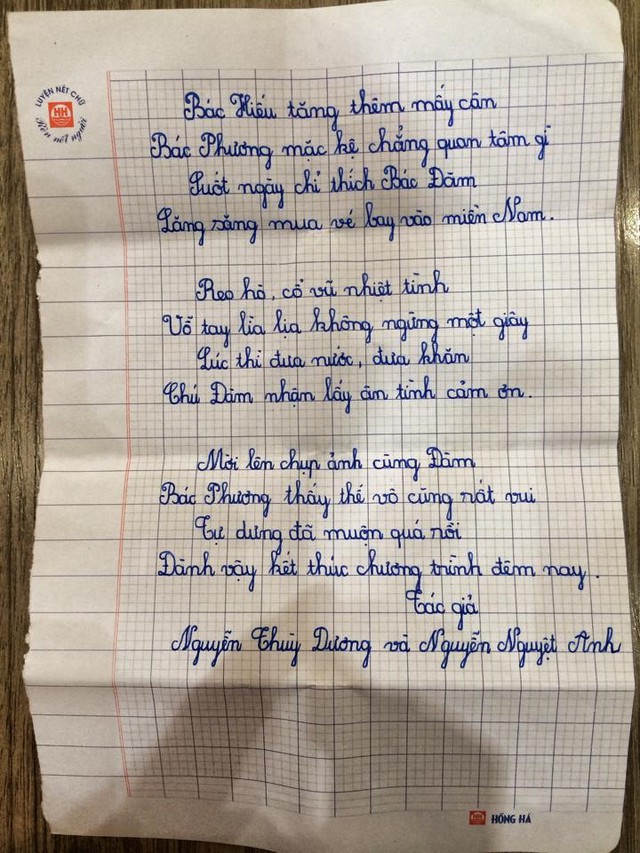 LUYỆN NẾT CHỮ
HH
Rèn nết người
Bác Hiếu tăng thêm mấy cân
Bác Phương mặc kệ chẳng quan tâm gì
Suốt ngày chỉ thích Bác Đàm
Lăng xăng mua vé bay vào miền Nam.
Reo hò, cổ vũ nhiệt tình
Vỗ tay lia lịa không ngừng một giây
Lúc thì đưa nước, đưa khăn
Chú Đàm nhận lấy ân tình cảm ơn.
Mời lên chụp ảnh cùng Đàm
Bác Phương thấy thế vô cùng rất vui
Tự dưng đã muộn quá rồi
Đành vậy kết thúc chương trình đêm nay.
Tác giả
Nguyễn Thuỳ Dương và Nguyễn Nguyệt Anh
HH HỒNG HÀ